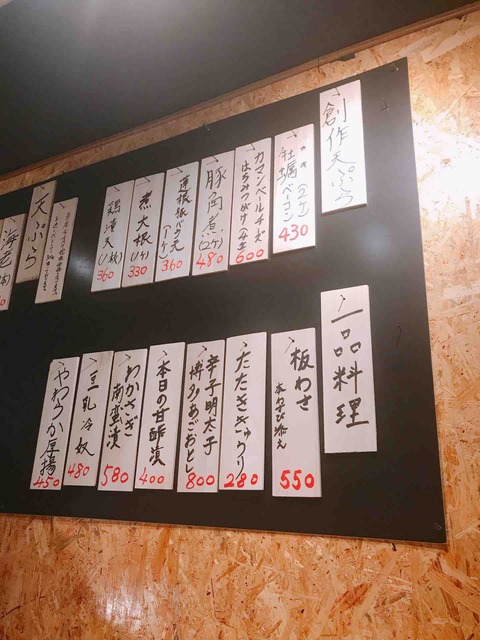 創作天ぷら
牡蠣ベーコン(2ケ)
430
カマンベールチーズ
はちみつがけ
600
豚角煮(2ケ)
480
蓮根
(1ケ)
360
煮大根(1ケ)
330
鶏
天(1枚)
360
天ぷら
海老
一品料理
板わさ
本わさび添え
550
たたききゅうり
280
辛子明太子
博多あごおとし
800
本日の甘酢漬
400
わかさぎ
南蛮漬
580
豆乳冷奴
480
やわらか厚揚
450